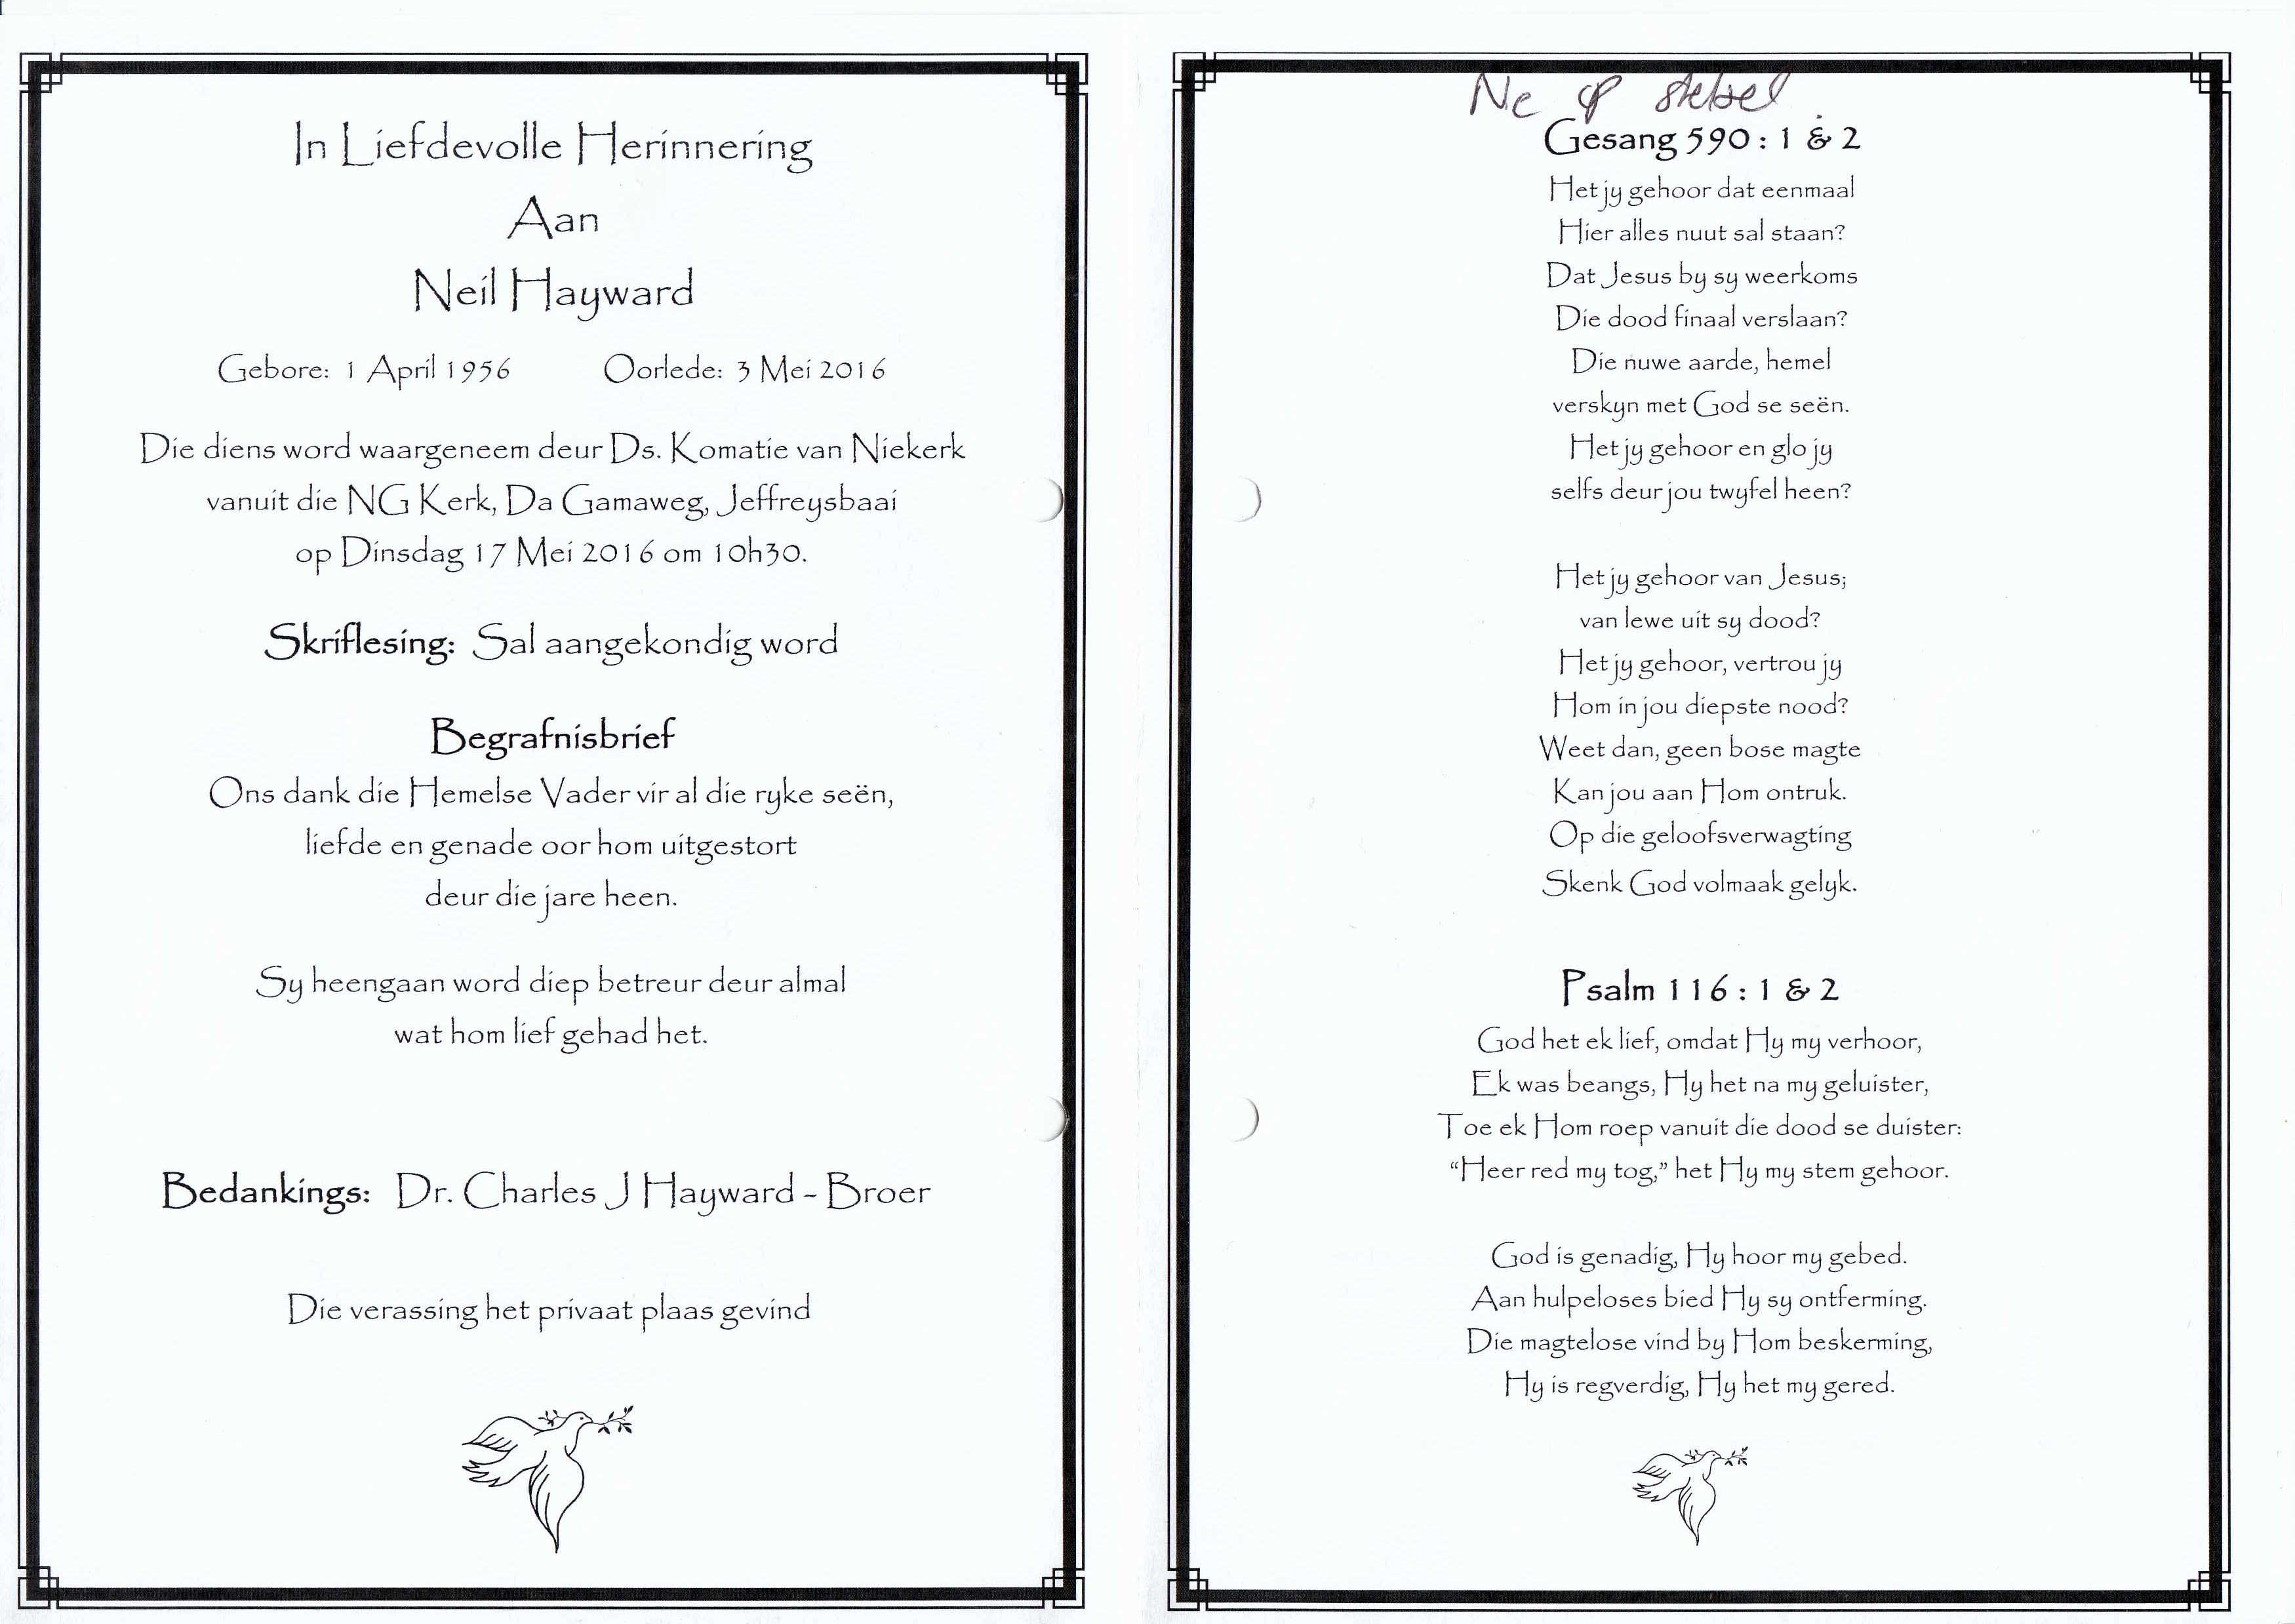 In Liefdevolle Herinnering
Aan
Neil Hayward
Gebore: 1 April 1956 Oorlede: 3 Mei 2016
Die diens word waargeneem deur Ds. Komatie van Niekerk
vanuit die NG Kerk, Da Gamaweg, Jeffreysbaai
op Dinsdag 17 Mei 2016 om 10h30.
Skriflesing: Sal aangekondig word
Begrafnisbrief
Ons dank die Hemelse Vader vir al die ryke seën,
liefde en genade oor hom uitgestort
deur die jare heen.
Sy heengaan word diep betreur deur almal
wat hom lief gehad het.
Bedankings: Dr. Charles J Hayward - Broer
Die verassing het privaat plaas gevind
op
Gesang 590 : 1 & 2
Het jy gehoor dat eenmaal
Hier alles nuut sal staan?
Dat Jesus by sy weerkoms
Die dood finaal verslaan?
Die nuwe aarde, hemel
verskyn met God se seën.
Het jy gehoor en glo jy
selfs deur jou twyfel heen?
Het jy gehoor van Jesus;
van lewe uit sy dood?
Het jy gehoor, vertrou jy
Hom in jou diepste nood?
Weet dan, geen bose magte
Kan jou aan Hom ontruk.
Op die geloofsverwagting
Skenk God volmaak gelyk.
Psalm 116 : 1 & 2
God het ek lief, omdat Hy my verhoor,
Ek was beangs, Hy het na my geluister,
Toe ek Hom roep vanuit die dood se duister:
“Heer red my tog,” het Hy my stem gehoor.
God is genadig, Hy hoor my gebed.
Aan hulpeloses bied Hy sy ontferming.
Die magtelose vind by Hom beskerming,
Hy is regverdig, Hy het my gered.